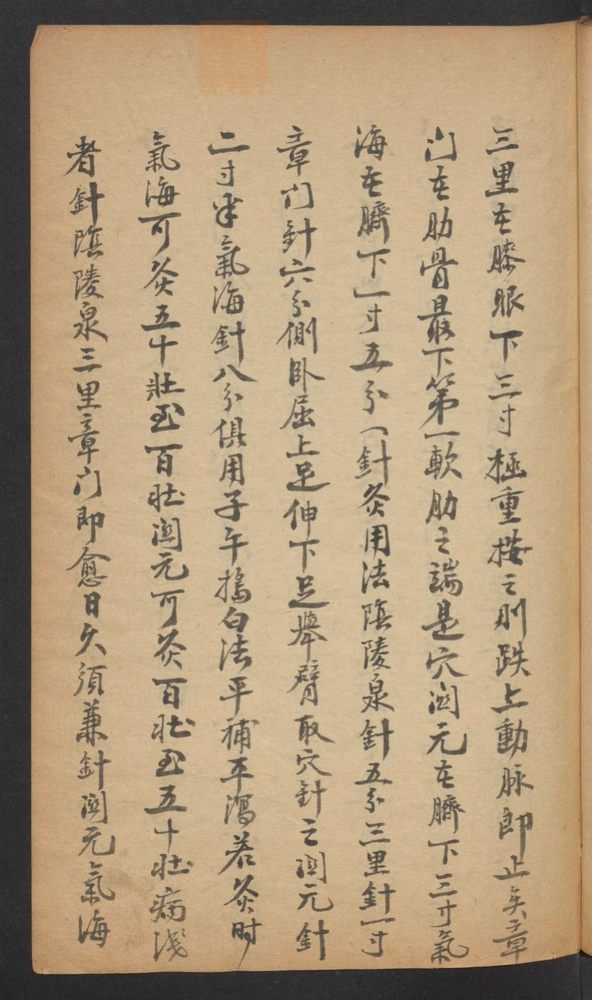 三里在膝眼下三寸極重按之則趺上動脉即止矣章
门在肋骨最下第一軟肋之端是穴関元在臍下三寸氣
海在臍下一寸五分（針灸用法陰陵泉針五分三里針一寸
章门針六分側卧屈上足伸下足举臂取穴針之関元針
二寸半氣海針八分俱用子午搗臼法平補平瀉若灸时
氣海可灸五十壮至一百壮関元可灸百壮至五十壮病浅
者針陰陵泉三里章门即愈日久須兼針関元氣海